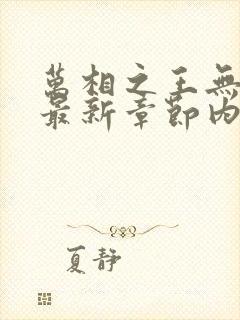 萬相之王無
最新章節內
夏静